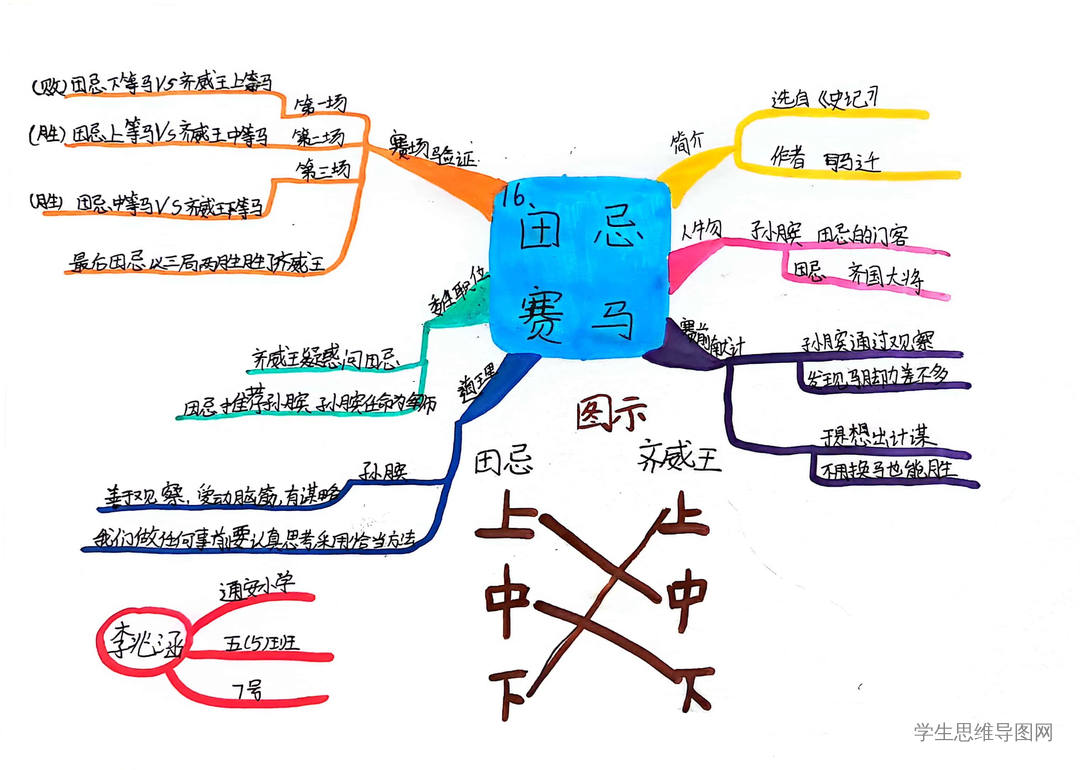 16.
田忌
赛马
简介
选自《史记》
作者 司马迁
人物
孙膑 田忌的门客
田忌 齐国大将
赛前献计
孙膑通过观察
发现马脚力差不多
于是想出计谋
不用换马也能胜
赛场验证
第一场
(败)田忌下等马VS齐威王上等马
第二场
(胜)田忌上等马VS齐威王中等马
第三场
(胜) 田忌中等马VS齐威王下等马
最后田忌以三局两胜胜了齐威王
委任职位
齐威王疑惑问田忌
田忌推荐孙膑 孙膑任命为军师
道理
孙膑
善于观察,爱动脑筋,有谋略
我们做任何事前要认真思考采用恰当方法
图示
田忌 齐威王
上 上
中 中
下 下
李兆涵
通安小学
五(5)班
7号
学生思维导图网